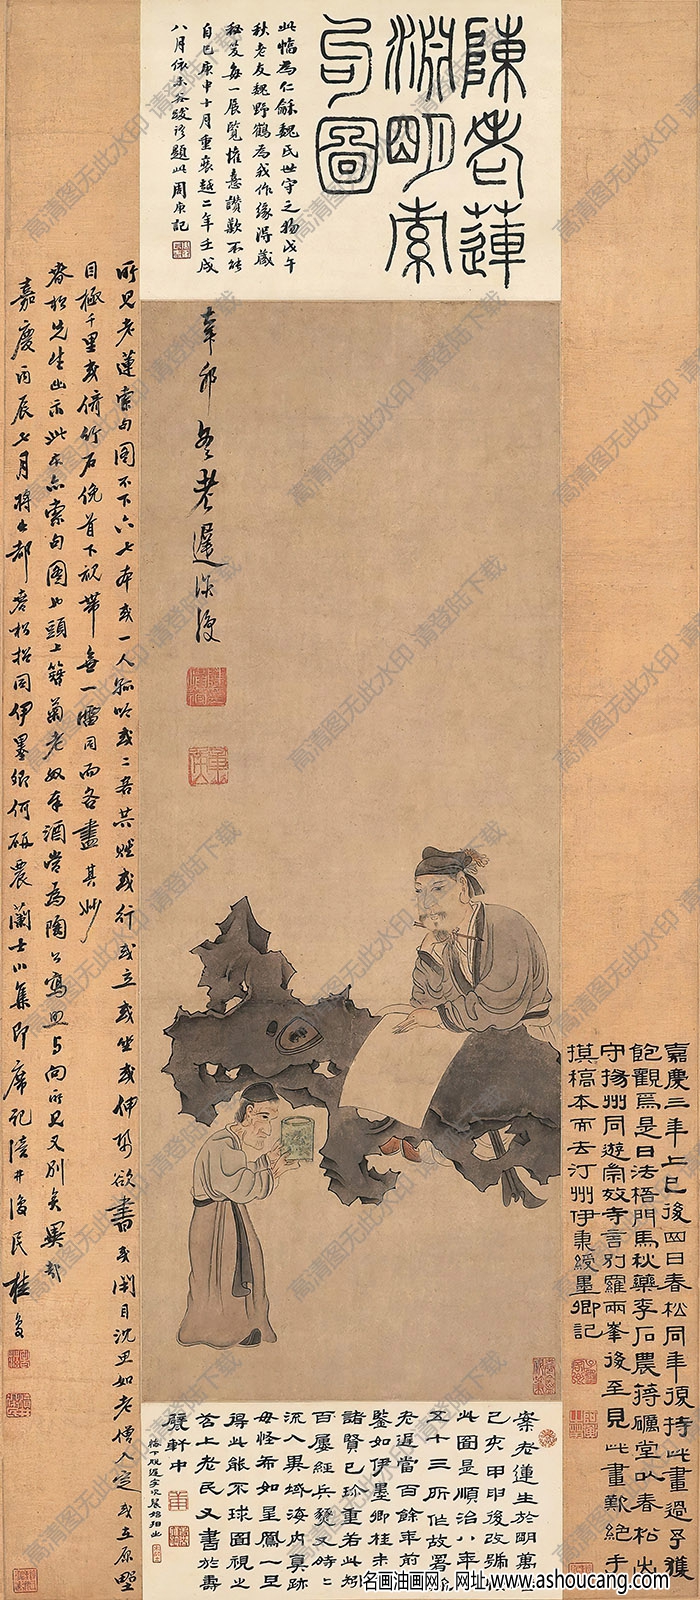 陳老蓮
淵明索
句圖
此幀為仁龢魏氏世守之物戊午
秋老友魏野鶴為我作緣得藏
秘笈每一展覽權喜讚歎不能
自已庚申十月重裝越二年壬戌
八月依
題此周庚記
辛卯冬老遲作
所見老蓮索句圖不下六七本或一人孤吟或二吾共賦或行或立或坐或伸紙欲書或閉目沈思如老僧入定或立原野
目極千里或倚竹石俛首下視帶無一雷同而各盡其妙
春松先生出示此本亦索句圖也頭上簪菊老奴奉酒當為陶公寫照与向所見又別矣異哉
嘉慶丙辰七月將出都春松招同伊墨卿何硯農蘭士小集即席記
桂馥
嘉慶三年上巳後四日春松同年復持此畫過予獲
飽觀焉是日法梧門馬秋藥李石農蔣礪堂以春松出
守揚州同遊崇效寺言別羅兩峯後至見此畫歎絕手
摸稿本而去汀州伊秉綬墨卿記
案老蓮生於明萬
己亥甲申後改號
此圖是順治八年
五十三所作故署
老遲當百餘年前
鑒如伊墨卿桂未
諸賢已珍重若此矧
百屢經兵燹又時二
流入異域海内真跡
毋怪希如星鳳一旦
得此能不球圖視之
苦上老民又書於壽
軒中
名画油画网，网址www.ashoucang.com
高清图无此水印 请登陆下载